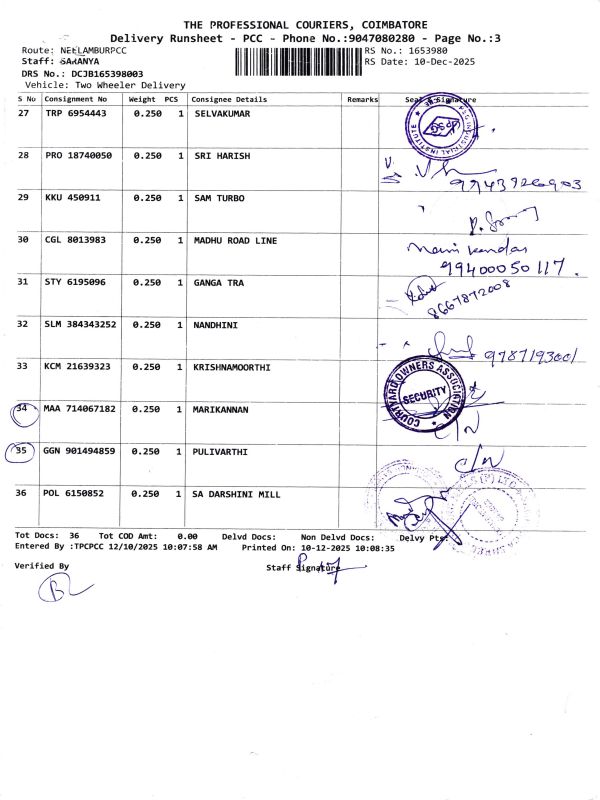 THE PROFESSIONAL COURIERS, COIMBATORE
Delivery Runsheet - PCC - Phone No.:9047080280 - Page No.:3
Route: NEELAMBURPCC RS No.: 1653980
Staff: SARANYA RS Date: 10-Dec-2025
DRS No.: DCJB165398003
Vehicle: Two Wheeler Delivery
S No Consignment No Weight PCS Consignee Details Remarks Seal & Signature
27 TRP 6954443 0.250 1 SELVAKUMAR
28 PRO 18740050 0.250 1 SRI HARISH
9943926903
29 KKU 450911 0.250 1 SAM TURBO
30 CGL 8013983 0.250 1 MADHU ROAD LINE
99400050117.
31 STY 6195096 0.250 1 GANGA TRA
8667872008
32 SLM 384343252 0.250 1 NANDHINI
9787193001
33 KCM 21639323 0.250 1 KRISHNAMOORTHI
COURTYARD OWNERS ASSOCIATION
SECURITY
34 MAA 714067182 0.250 1 MARIKANNAN
C/N
35 GGN 901494859 0.250 1 PULIVARTHI
C/N
36 POL 6150852 0.250 1 SA DARSHINI MILL
Tot Docs: 36 Tot COD Amt: 0.00 Delvd Docs: Non Delvd Docs: Delvy Pts:
Entered By :TPCPCC 12/10/2025 10:07:58 AM Printed On: 10-12-2025 10:08:35
Verified By Staff Signature